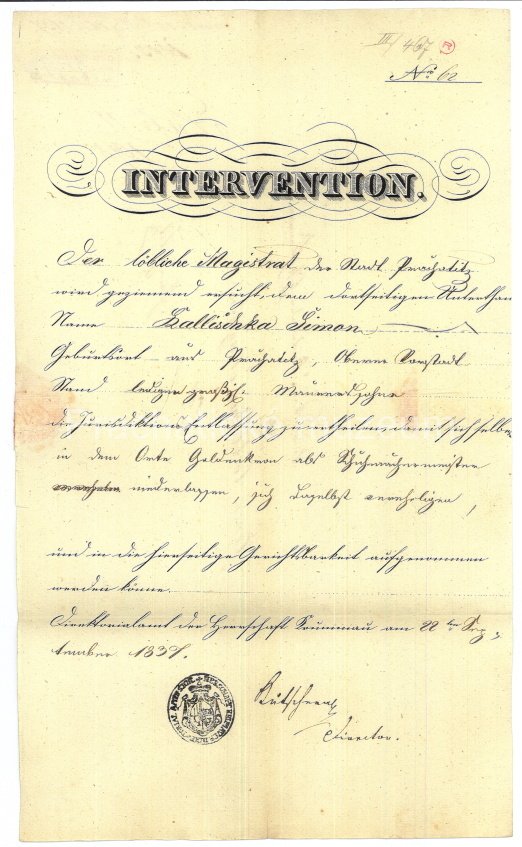 III/467
No 62
INTERVENTION.
Der löbliche Magistrat der Stadt Prachatitz
wird geziemend ersucht, dem dortseitigen Unterthan
Name Zallischka Simon
Geburtsort aus Prachatitz, Oberer Vorstadt
Stand lediger Maurerssohne
die Jurisdiktions Entlassung zu ertheilen, damit sich selber
in dem Orte Goldenkron als Schuhmachermeister
niederlassen, sich daselbst vereheligen,
und in die hierseitige Gerichtsbarkeit aufgenommen
werden könne.
Direktorialamt der Herrschaft Krummau am 22ten Sep¬
tember 1837.
Director.